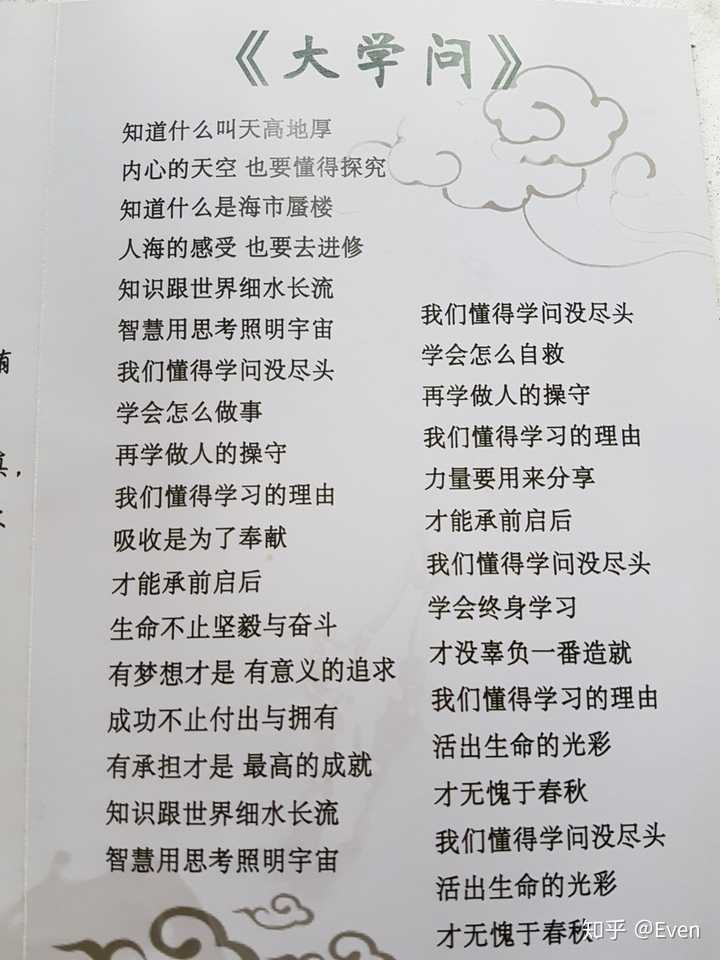 《大学问》
知道什么叫天高地厚
内心的天空 也要懂得探究
知道什么是海市蜃楼
人海的感受 也要去进修
知识跟世界细水长流
智慧用思考照明宇宙
我们懂得学问没尽头
学会怎么做事
再学做人的操守
我们懂得学习的理由
吸收是为了奉献
才能承前启后
生命不止坚毅与奋斗
有梦想才是 有意义的追求
成功不止付出与拥有
有承担才是 最高的成就
知识跟世界细水长流
智慧用思考照明宇宙
我们懂得学问没尽头
学会怎么自救
再学做人的操守
我们懂得学习的理由
力量要用来分享
才能承前启后
我们懂得学问没尽头
学会终身学习
才没辜负一番造就
我们懂得学习的理由
活出生命的光彩
才无愧于春秋
我们懂得学问没尽头
活出生命的光彩
才无愧于春秋
知乎 @Even